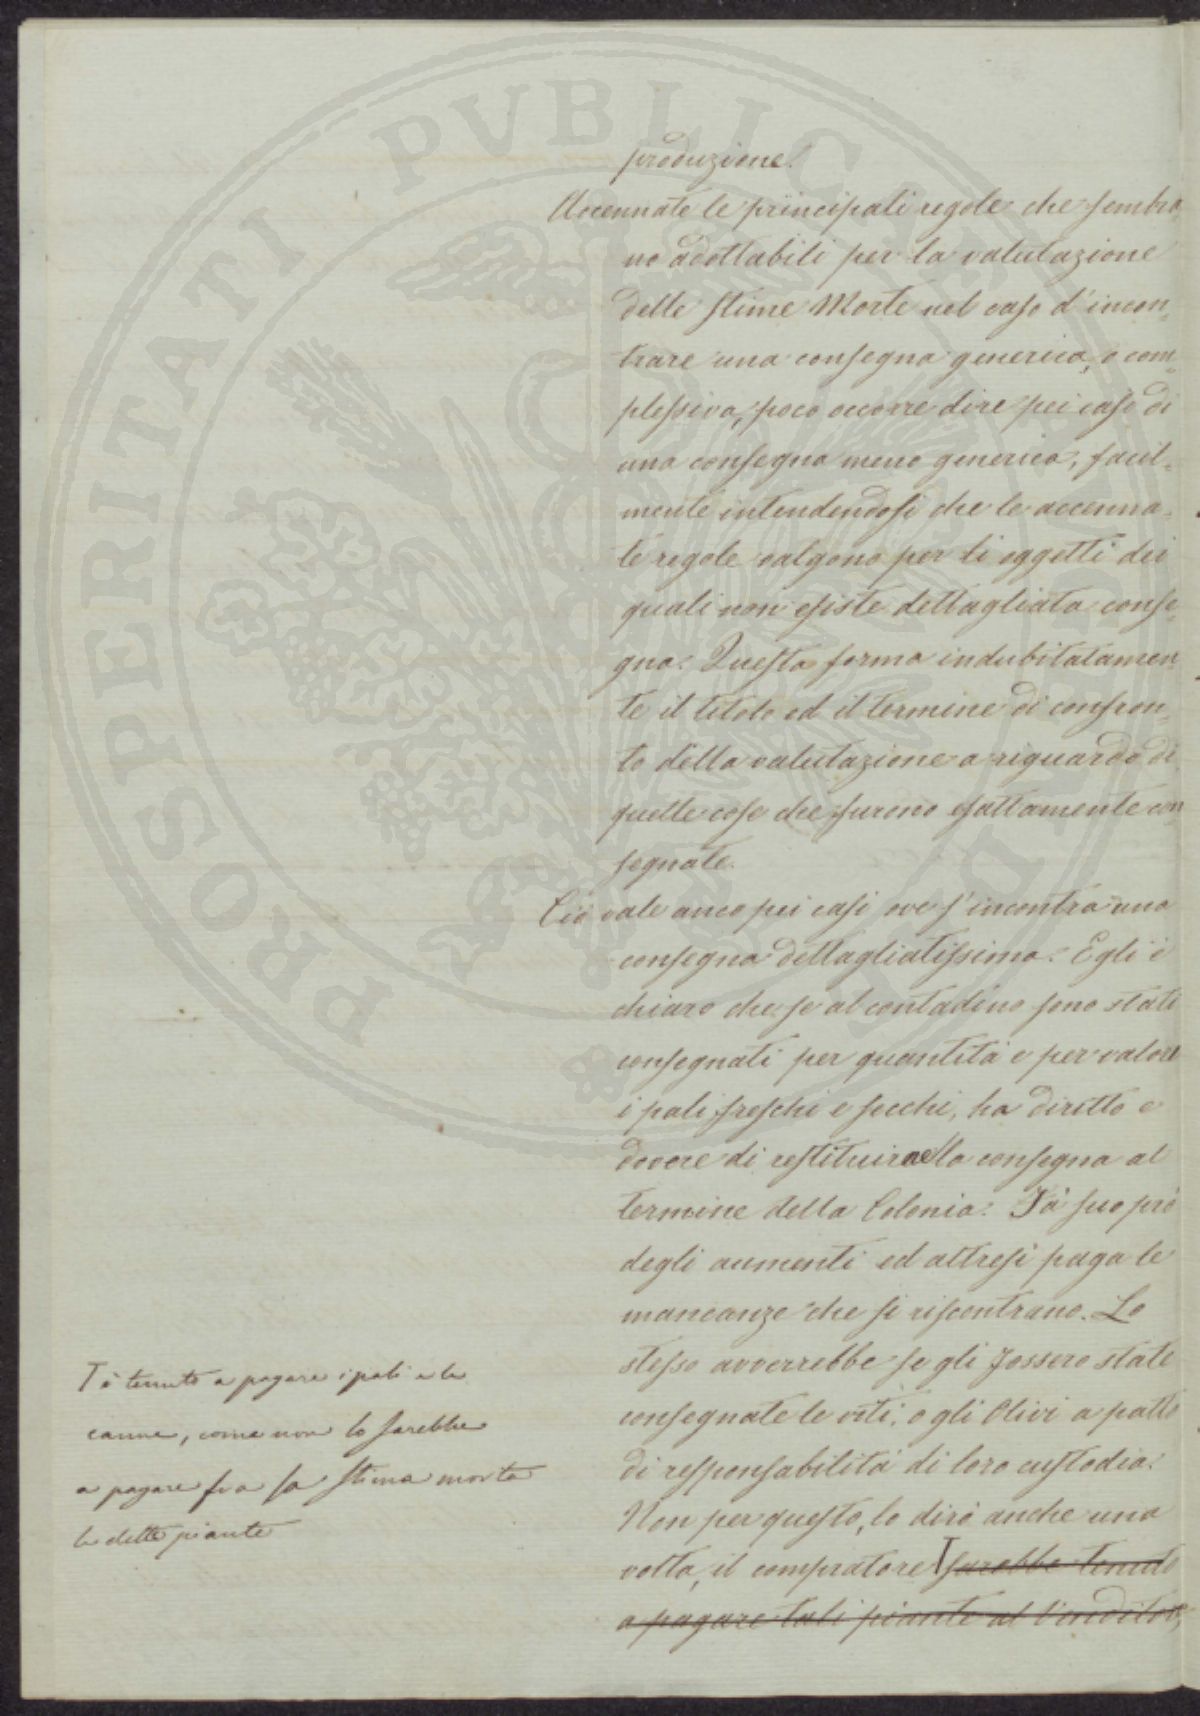 produzione.
Accennate le principali regole che sembra
no adottabili per la valutazione
delle stime Morte nel caso d'incon=
trare una consegna generica, o com=
plessiva, poco occorre dire pei casi di
una consegna meno generica; facil=
mente intendendosi che le accenna=
te regole valgono per li oggetti dei
quali non esiste dettagliata conse
gna. Questa forma indubitatamen
te il titolo ed il termine di confron=
to della valutazione a riguardo di
quelle cose che furono esattamente con
segnate.
Ciò vale anco pei casi ove s'incontra una
consegna dettagliatissima. Egli è
chiaro che se al contadino sono stati
consegnati per quantità e per valore
i pali freschi e secchi, ha diritto e
dovere di restituirne la consegna al
termine della Colonia. Fà suo prò
degli aumenti ed altresì paga le
mancanze che si riscontrano. Lo
stesso avverrebbe se gli fossero state
consegnate le viti, o gli Olivi a patto
di responsabilità di loro custodia.
Non per questo, lo dirò anche una
volta, il compratore sarebbe tenuto
a pagare tali piante al Venditore,
T è tenuto a pagare i pali e le
canne, come non lo sarebbe
a pagare fra la stima morta
le dette piante
PROSPERITATI PVBLICAE